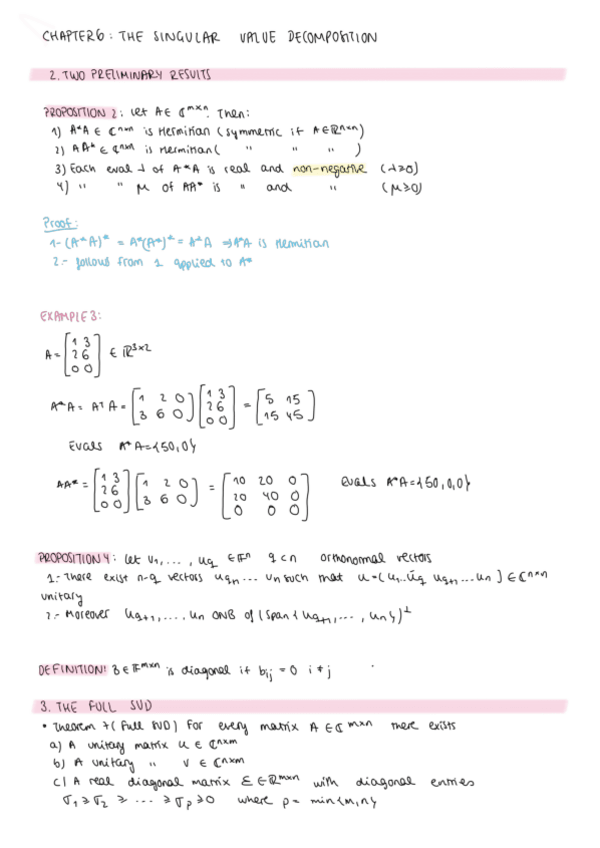 CHAPTER 6: THE SINGULAR VALUE DECOMPOSITION
2. TWO PRELIMINARY RESULTS
PROPOSITION 2: Let A ∈ ℂ^m×n. Then:
1) A*A ∈ ℂ^n×n is Hermitian (symmetric if A∈ℝ^n×n)
2) AA* ∈ ℂ^n×n is Hermitian ( " " " )
3) Each eval λ of A*A is real and non-negative (λ≥0)
4) " " μ of AA* is " and " (μ≥0)
Proof:
1- (A*A)* = A*(A*)* = A*A ⇒ A*A is Hermitian
2.- follows from 1 applied to A*
EXAMPLE 3:
A = [1 3; 2 6; 0 0] ∈ ℝ^3×2
A*A = A^T A = [1 2 0; 3 6 0] [1 3; 2 6; 0 0] = [5 15; 15 45]
Evals A*A = {50,0}
AA* = [1 3; 2 6; 0 0] [1 2 0; 3 6 0] = [10 20 0; 20 40 0; 0 0 0] evals A*A = {50,0,0}
PROPOSITION 4: Let u1, ..., uq ∈ 𝔽^n q<n orthonormal vectors
1.- There exist n-q vectors uq+1 ... un such that u = (u1..uq uq+1 ... un) ∈ ℂ^n×n
unitary
2.- Moreover uq+1, ..., un ONB of (span{uq+1, ..., un})^⊥
DEFINITION: B∈𝔽^m×n is diagonal if bij = 0 i ≠ j
3. THE FULL SVD
• Theorem 7 (Full SVD) For every matrix A ∈ ℂ^m×n there exists
a) A unitary matrix u ∈ ℂ^n×m
b) A unitary " V ∈ ℂ^n×m
c) A real diagonal matrix Σ∈ℝ^m×n with diagonal entries
σ1 ≥ σ2 ≥ ... ≥ σp ≥ 0 where p = min{m,n}